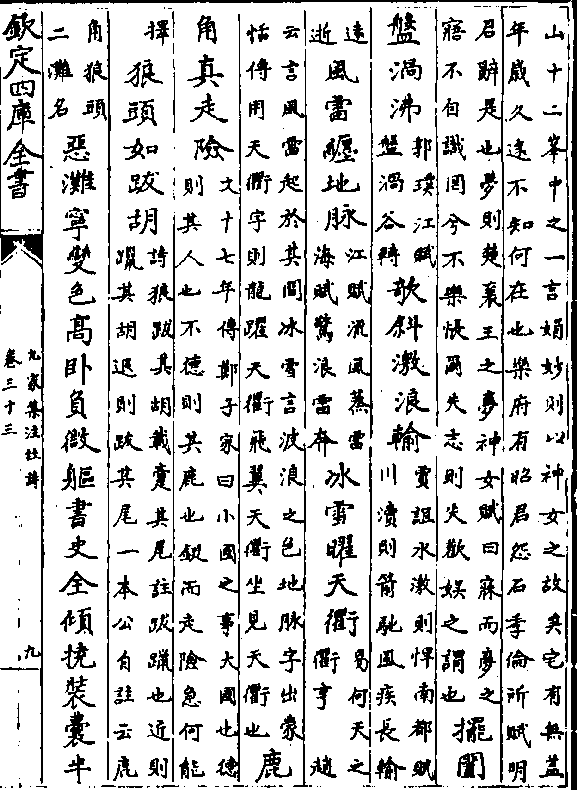 山十二峯中之一言娟妙則以神女之故矣宅有無蓋
年嵗久逺不知何在也樂府有昭君怨石季倫所賦明
君辭是也夢則楚襄王之夢神女賦曰寐而夢之
寤不自識罔兮不樂悵爾失志則失歡娱之謂也
擺闔
盤渦沸
郭璞江賦
盤渦谷轉
欹斜激浪輸
賈誼水激則悍南都賦
川瀆則箭馳風疾長輸
逺
逝
風雷纒地脉
江賦流風蒸雷
海賦驚浪雷奔
冰雪曜天衢
易何天之
衢亨 趙
云言風雷起於其間冰雪言波浪之色地脉字出蒙
恬傳用天衢字則龍躍天衢飛翼天衢坐見天衢也
鹿
角真走險
文十七年傳鄭子家曰小國之事大國也德
則其人也不德則其鹿也鋌而走險急何能
擇
狼頭如跋胡
詩狼跋其胡載疐其尾註跋躐也近則
躐其胡退則跋其尾一本公自註云鹿
角狼頭
二灘名
惡灘寧變色髙卧負微軀書史全傾撓裝囊半
欽定四庫全書
九家集注杜詩
卷三十三
九